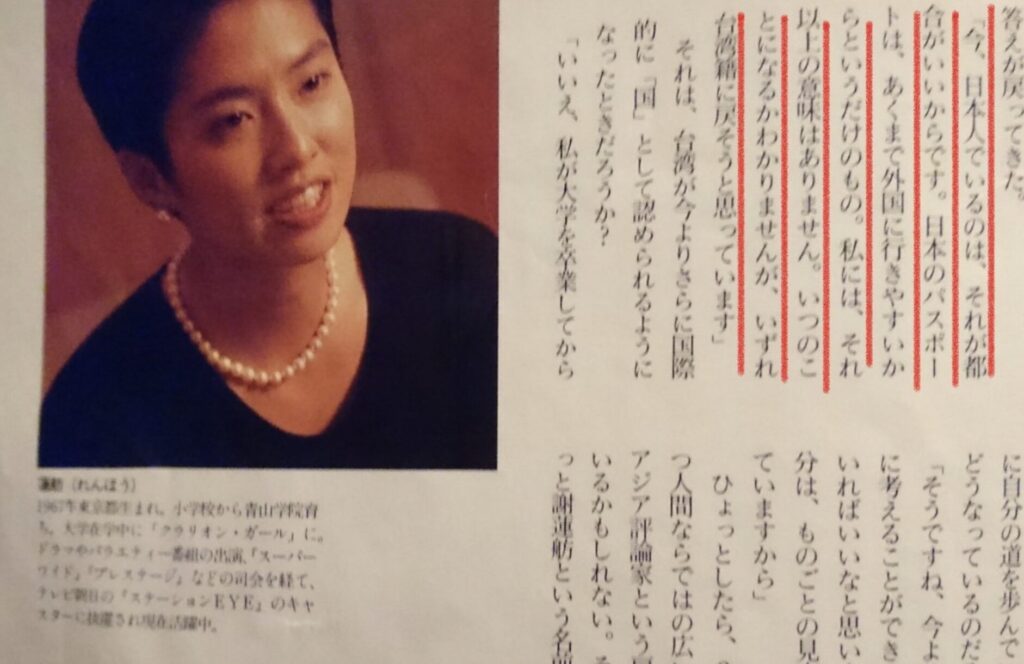 答えが戻ってきた。
「今、日本人でいるのは、それが都
合がいいからです。日本のパスポー
トは、あくまで外国に行きやすいか
らというだけのもの。私には、それ
以上の意味はありません。いつのこ
とになるかわかりませんが、いずれ
台湾籍に戻そうと思っています」
それは、台湾が今よりさらに国際
的に「国」として認められるように
なったときだろうか?
「いいえ、私が大学を卒業してから
に自分の道を歩んで
どうなっているのだ
「そうですね、今よ
に考えることができ
いればいいなと思い
分は、ものごとの見
ていますから」
ひょっとしたら、
つ人間ならではの広
アジア評論家という
いるかもしれない。そ
っと謝蓮舫という名前
蓮舫(れんほう)
1967年東京都生まれ。小学校から青山学院育
ち。大学在学中に「クラリオン・ガール」に。
ドラマやバラエティー番組の出演、「スーパー
ワイド」「プレステージ」などの司会を経て、
テレビ朝日の『ステーションEYE』のキャ
スターに抜擢され現在活躍中。